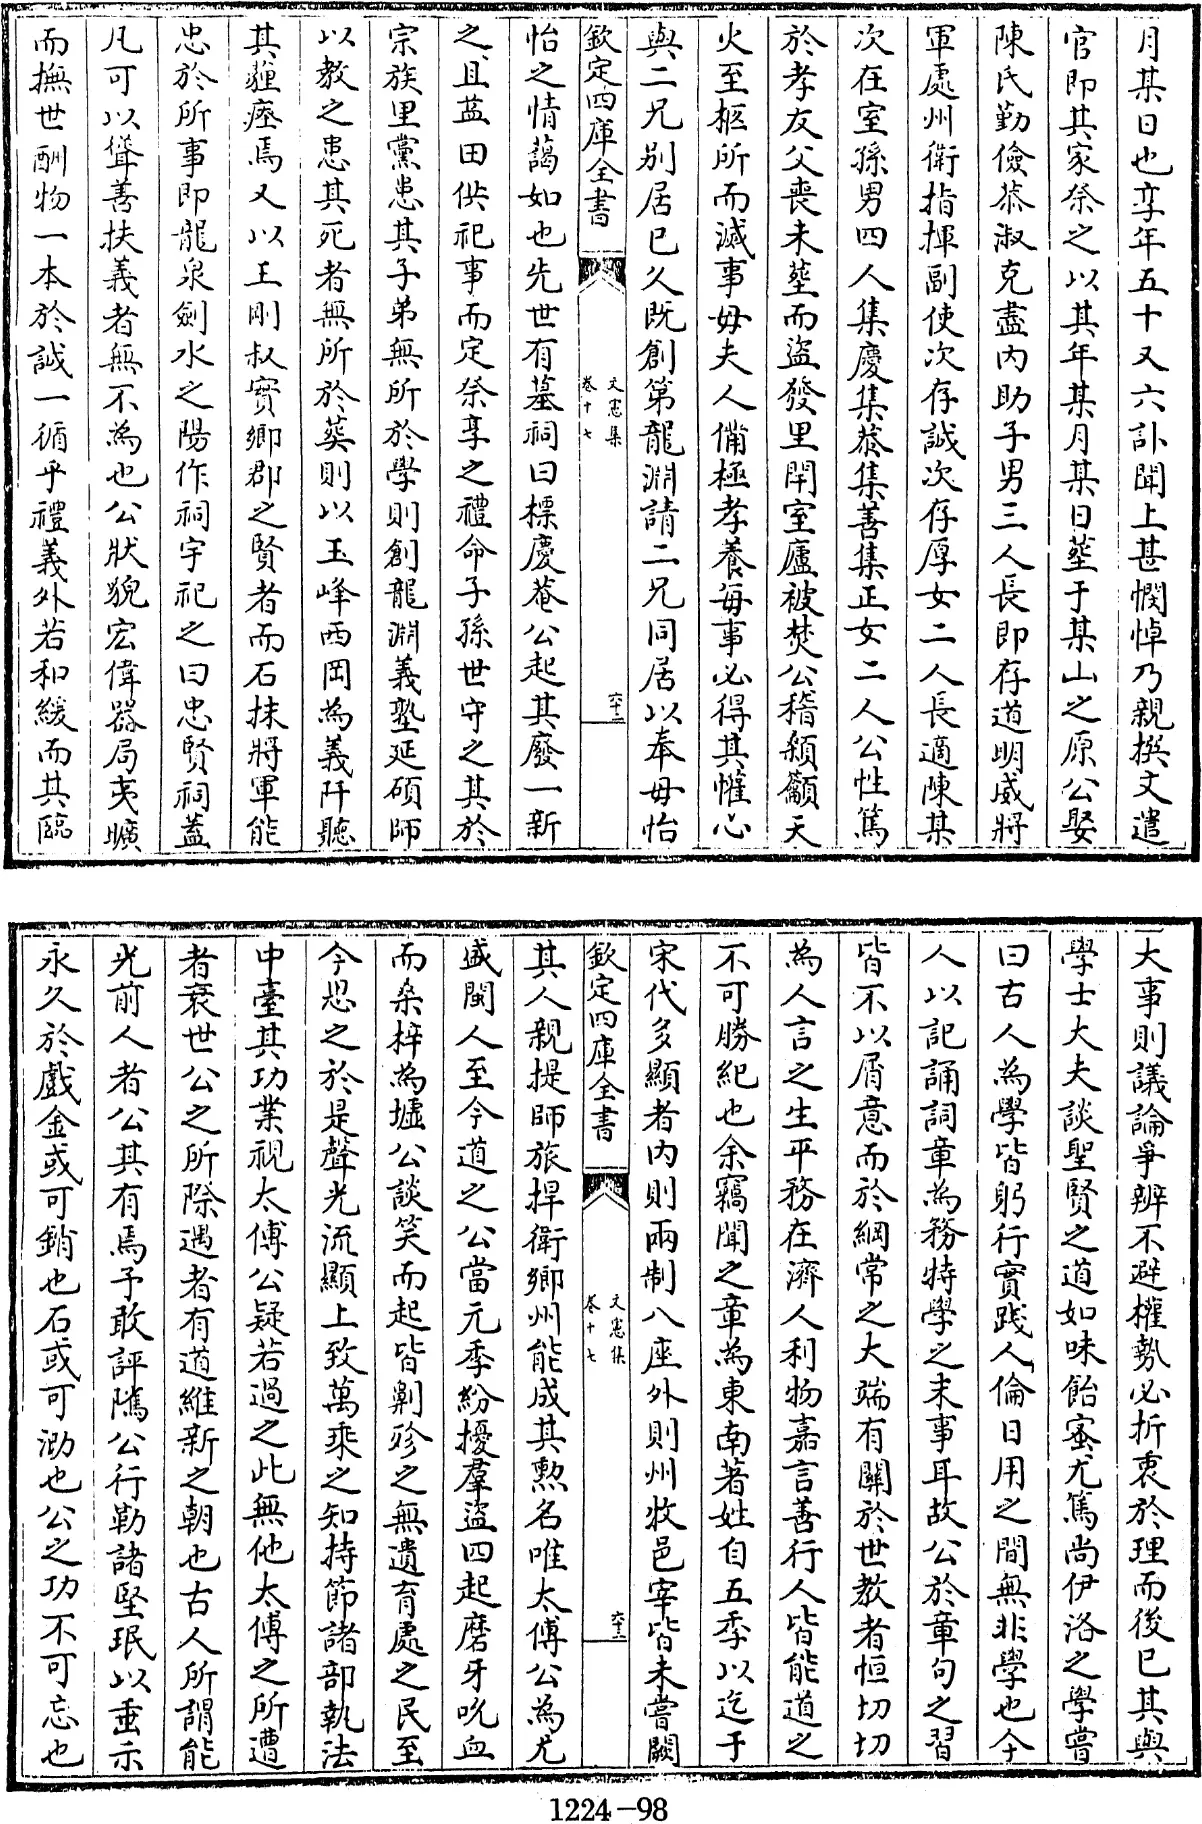 月某日也享年五十又六訃聞上甚憫悼乃親撰文遣
官即其家祭之以其年某月某日塟于某山之原公娶
陳氏勤儉恭淑克盡内助子男三人長即存道明威將
軍處州衛指揮副使次存誠次存厚女二人長適陳某
次在室孫男四人集慶集恭集善集正女二人公性篤
於孝友父喪未塟而盜發里閈室廬被焚公稽顙籲天
火至柩所而滅事母夫人備極孝養每事必得其懽心
與二兄别居已久既創第龍淵請二兄同居以奉母怡
欽定四庫全書
文憲集
卷十七
六十二
怡之情藹如也先世有墓祠曰標慶菴公起其廢一新
之且葢田供祀事而定祭享之禮命子孫世守之其於
宗族里黨患其子弟無所於學則創龍淵義塾延碩師
以教之患其死者無所於葬則以玉峰西岡為義阡聽
其薶瘞焉又以王剛叔實鄉郡之賢者而石抹將軍能
忠於所事即龍泉劍水之陽作祠宇祀之曰忠賢祠葢
凡可以聳善扶義者無不為也公狀貌宏偉器局夷曠
而撫世酬物一本於誠一循乎禮義外若和緩而其臨
大事則議論爭辨不避權勢必折衷於理而後已其與
學士大夫談聖賢之道如味飴蜜尤篤尚伊洛之學嘗
曰古人為學皆躬行實踐人倫日用之間無非學也今
人以記誦詞章為務特學之末事耳故公於章句之習
皆不以屑意而於綱常之大端有關於世教者恒切切
為人言之生平務在濟人利物嘉言善行人皆能道之
不可勝紀也余竊聞之章為東南著姓自五季以迄于
宋代多顯者内則兩制八座外則州牧邑宰皆未嘗闕
欽定四庫全書
文憲集
卷十七
六十三
其人親提師旅捍衛鄉州能成其勲名唯太傅公為尤
盛閩人至今道之公當元季紛擾羣盜四起磨牙吮血
而桑梓為墟公談笑而起皆剿殄之無遺育處之民至
今思之於是聲光流顯上致萬乘之知持節諸部執法
中臺其功業視太傅公疑若過之此無他太傅之所遭
者衰世公之所際遇者有道維新之朝也古人所謂能
光前人者公其有焉予敢評隲公行勒諸堅珉以垂示
永久於戲金或可銷也石或可泐也公之功不可忘也
1224-98